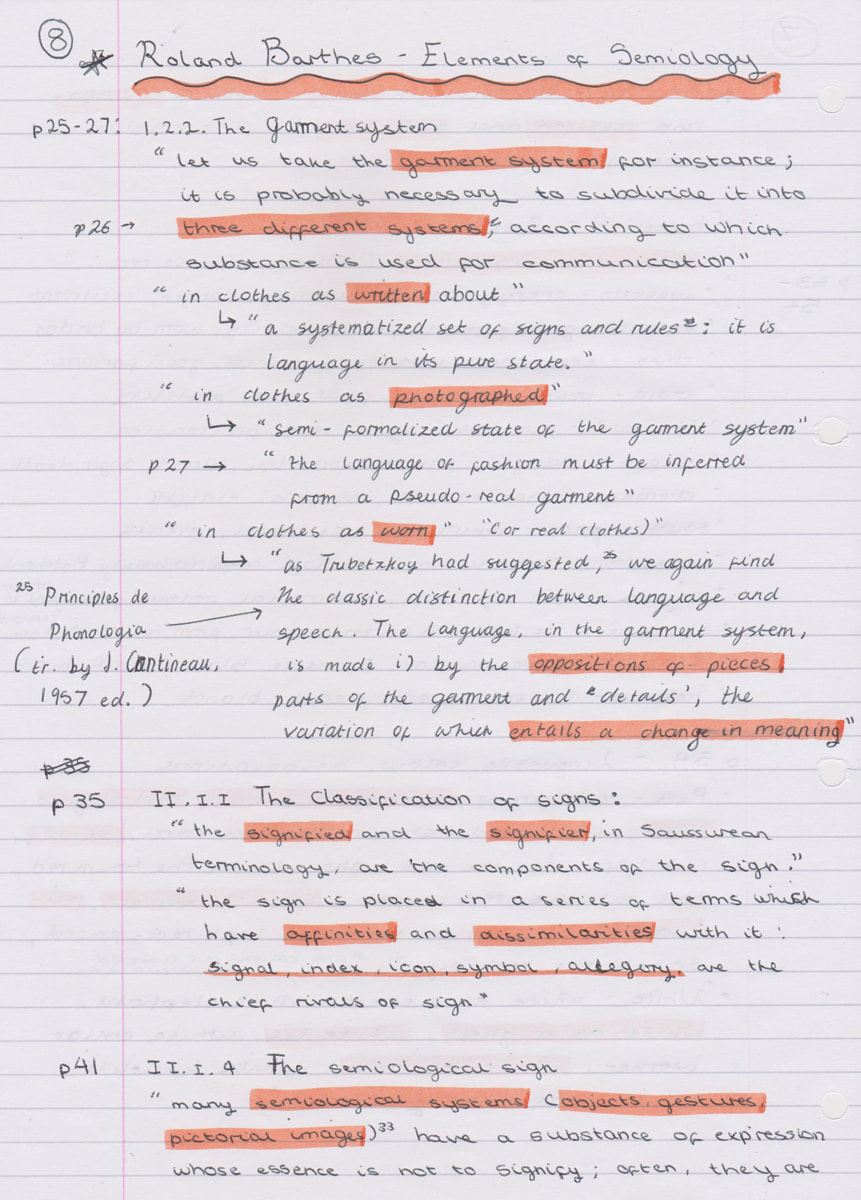 8
Roland Barthes - Elements of Semiology
p25-27: 1.2.2. The garment system
"let us take the garment system for instance;
it is probably necessary to subdivide it into
p26 → three different systems, according to which
substance is used for communication"
"in clothes as written about"
↳ "a systematized set of signs and rules: it is
language in its pure state."
"in clothes as photographed"
↳ "semi-formalized state of the garment system"
p27 → "the language of fashion must be inferred
from a pseudo-real garment"
"in clothes as worn" "(or real clothes)"
↳ "as Trubetzkoy had suggested,²⁵ we again find
²⁵ Principles de the classic distinction between language and
Phonologia speech. The language, in the garment system,
(tr. by J. Cantineau, is made i) by the oppositions of pieces
1957 ed.) parts of the garment and 'details', the
variation of which entails a change in meaning"
p35
p35 II.I.I The Classification of signs:
"the signified and the signifier, in Saussurean
terminology, are the components of the sign."
"the sign is placed in a series of terms which
have affinities and dissimilarities with it:
signal, index, icon, symbol, allegory, are the
chief rivals of sign"
p41 II.I.4 The semiological sign
"many semiological systems (objects, gestures,
pictorial images)³³ have a substance of expression
whose essence is not to signify; often, they are